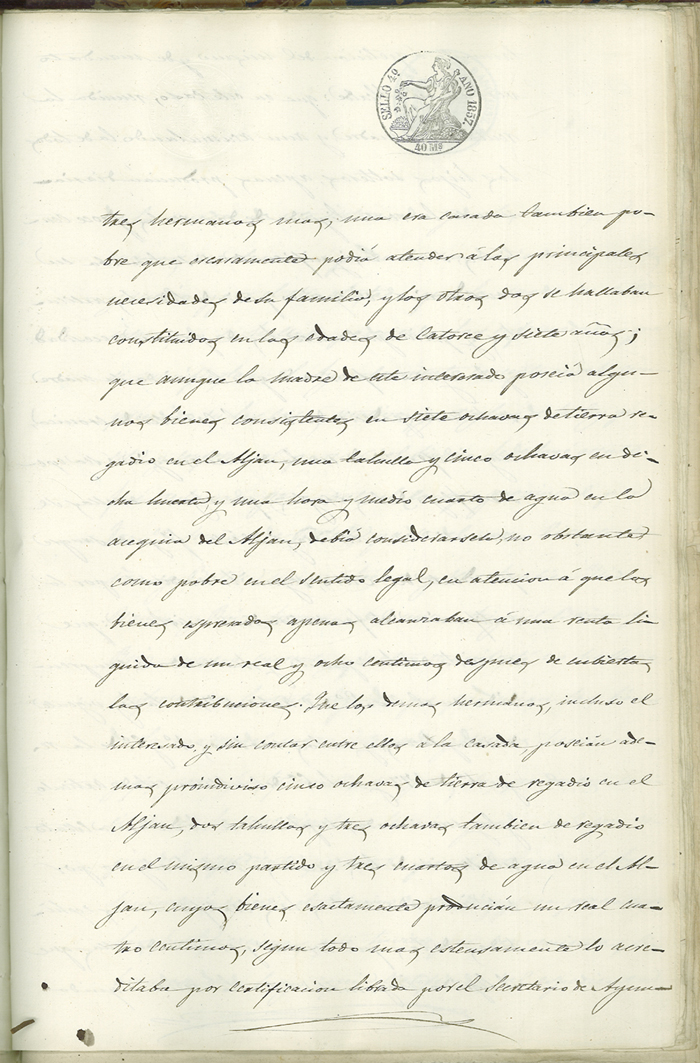 SELLO 4º AÑO 1857.
40 Ms
tres hermanos mas; una era casada tambien po-
bre que escasamente podiá atender á las principales
necesidades de su familia, y los otros dos se hallaban
constituidos en las edades de Catorce y siete años;
que aunque la madre de este interesado poseiá algu-
nos bienes consistentes en siete ochavas de tierra re-
gadio en el Aljan, una tahulla y cinco ochavas en di-
cha huerta, y una hora y medio cuarto de agua en la
acequia del Aljan, debiá considerarsele, no obstante
como pobre en el sentido legal, en atencion á que los
bienes espresados apenas alcanzaban á una renta li-
quida de un real y ocho centimos despues de cubiertas
las contribuciones. Que los demas hermanos, incluso el
interesado, y sin contar entre ellos á la casada, poseián ade-
mas proindiviso cinco ochavas de tierra de regadio en el
Aljan, dos tahullas y tres ochavas tambien de regadio
en el mismo partido y tres cuartos de agua en el Al-
jan, cuyos bienes esactamente producián un real cua-
tro centimos, segun todo mas estensamente lo acre-
ditaba por certificacion librada por el Secretario de Ayun-